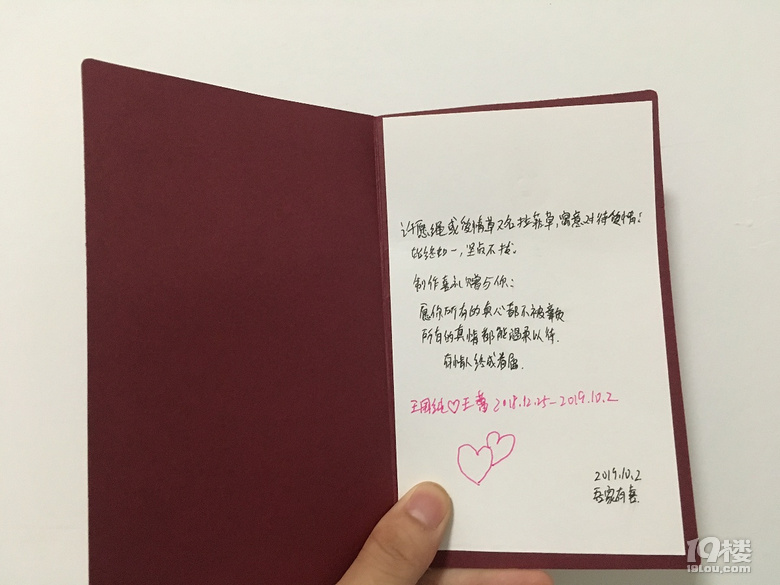 许愿绳或爱情草又名拉菲草，寓意对待爱情：
始终如一，坚贞不拔。
制作喜礼赠与你：
愿你所有的真心都不被辜负
所有的真情都能温柔以待.
有情人终成眷属.
王 王 2018.12.25—2019.10.2
2019.10.2
吾家有喜
19楼
19lou.com